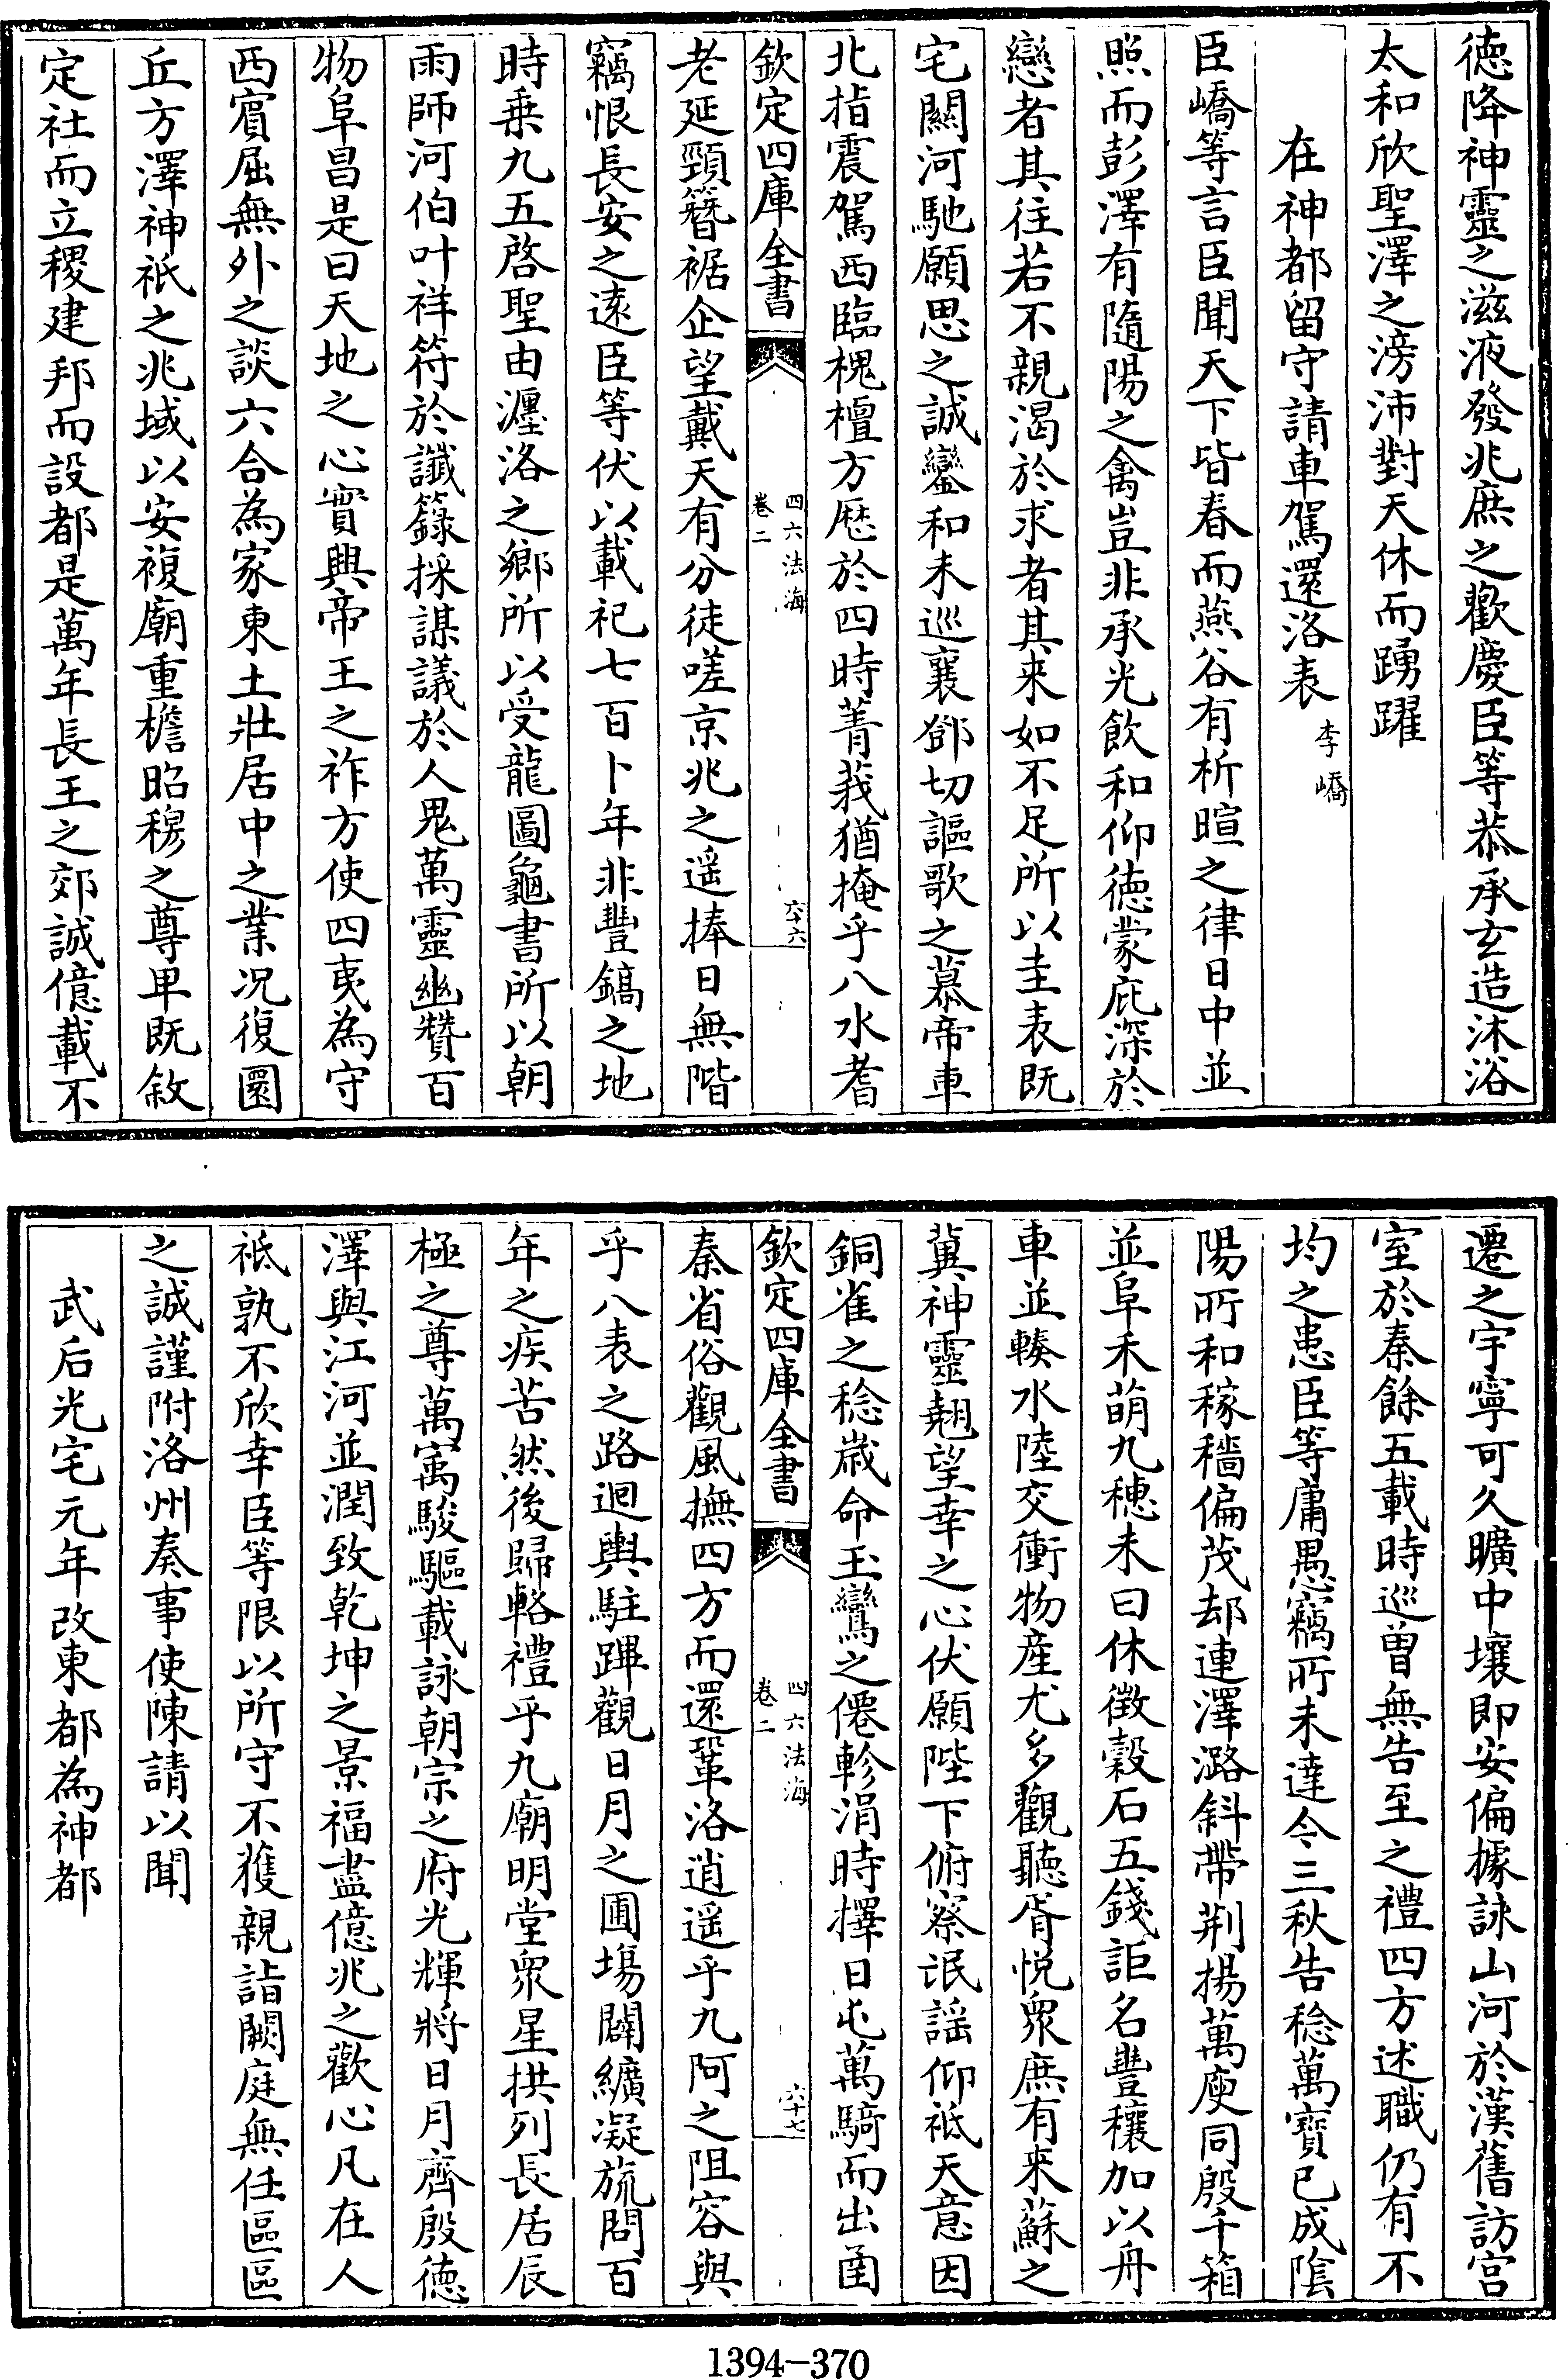 徳降神靈之滋液發兆庶之歡慶臣等恭承玄造沐浴
太和欣聖澤之滂沛對天休而踴躍
在神都留守請車駕還洛表 李嶠
臣嶠等言臣聞天下皆春而燕谷有析暄之律日中並
照而彭澤有隨陽之禽豈非承光飲和仰徳蒙庇深於
戀者其往若不親渴於求者其來如不足所以圭表既
宅闗河馳願思之誠鑾和未巡襄鄧切謳歌之慕帝車
北指震駕西臨槐檀方厯於四時菁莪猶掩乎八水耆
欽定四庫全書
四六法海
卷二
六十六
老延頸簪裾企望戴天有分徒嗟京兆之遥捧日無階
竊恨長安之逺臣等伏以載祀七百卜年非豐鎬之地
時乗九五啓聖由瀍洛之鄉所以受龍圖龜書所以朝
雨師河伯叶祥符於讖籙採謀議於人鬼萬靈幽贊百
物阜昌是曰天地之心實興帝王之祚方使四夷為守
西賔屈無外之談六合為家東土壯居中之業况復圜
丘方澤神祇之兆域以安複廟重檐昭穆之尊卑既敘
定社而立稷建邦而設都是萬年長王之郊誠億載不
遷之宇寧可久曠中壤即安偏據詠山河於漢舊訪宫
室於秦餘五載時巡曽無告至之禮四方述職仍有不
均之患臣等庸愚竊所未達今三秋告稔萬寳已成隂
陽所和稼穡偏茂却連澤潞斜帶荆揚萬庾同殷千箱
並阜禾萌九穗未曰休徴穀石五錢詎名豐穰加以舟
車並輳水陸交衝物産尤多觀聽胥悦衆庶有來蘇之
冀神靈翹望幸之心伏願陛下俯察氓謡仰祗天意因
銅雀之稔嵗命玉鸞之僊軫涓時擇日屯萬騎而出函
欽定四庫全書
四六法海
卷二
六十七
秦省俗觀風撫四方而還鞏洛逍遥乎九阿之阻容與
乎八表之路迴輿駐蹕觀日月之圃塲闢纊凝旒問百
年之疾苦然後歸輅禮乎九廟明堂衆星拱列長居辰
極之尊萬㝢駿驅載詠朝宗之府光輝將日月齊殷徳
澤與江河並潤致乾坤之景福盡億兆之歡心凡在人
祗孰不欣幸臣等限以所守不獲親詣闕庭無任區區
之誠謹附洛州奏事使陳請以聞
武后光宅元年改東都為神都
1394-370